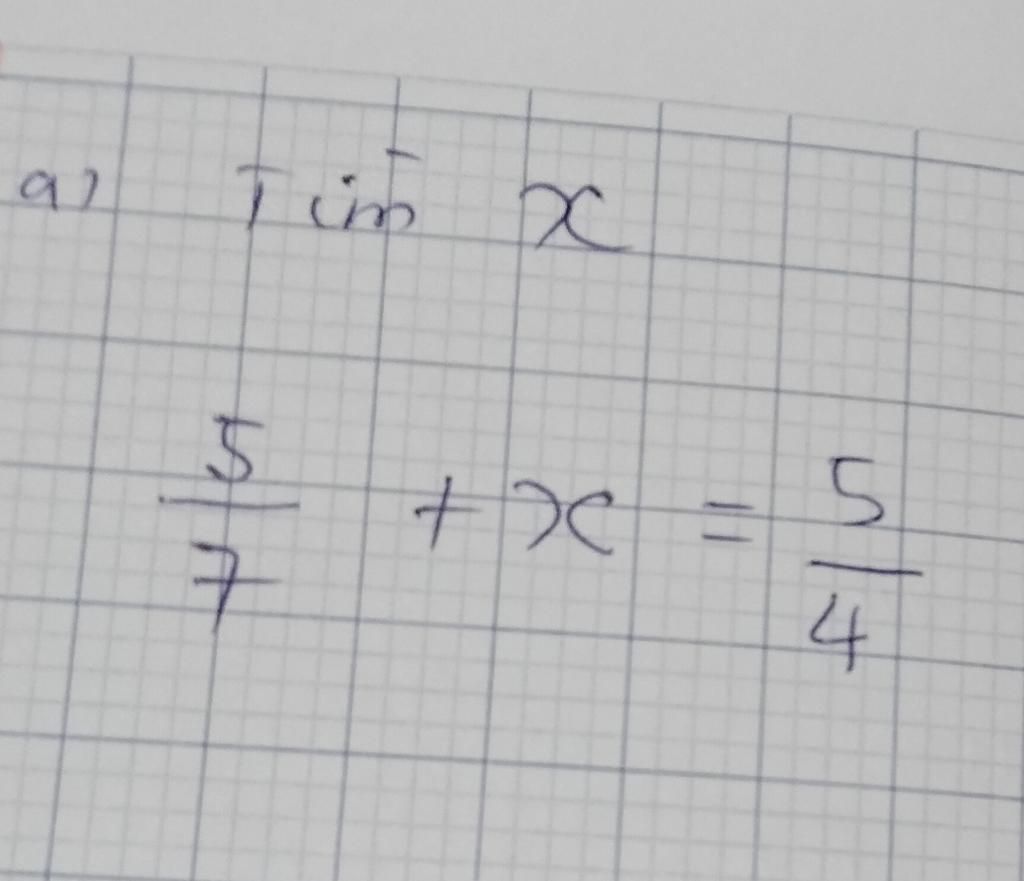 a) Tìm x
5/7 + x = 5/4